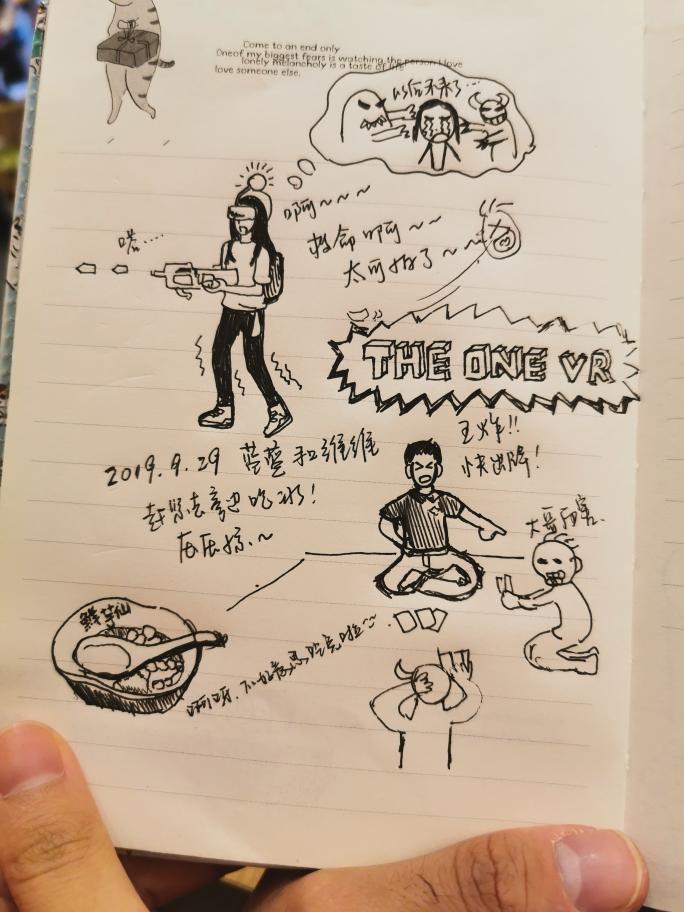 Come to an end only
Oneof my biggest fears is watching the person I love
lonely melancholy is a taste of life
love someone else.
以后不来了…
啊~~~
嗒....
救命啊~~
太可怕了~~
THE ONE VR
王炸!!
快出牌!
2019.9.29 莹莹和维维
赶紧去旁边吃冰!
压压惊.~
大哥厉害.
鲜芋仙
啊呀.不好意思吃完啦~~